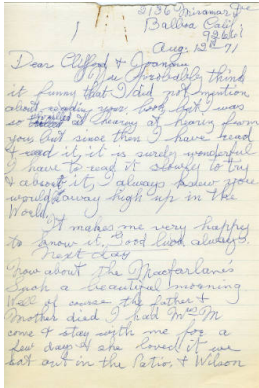 2136 Miramar Dr
Balboa Calif
92661
Aug. 12th 71
Dear Clifford &
You probably think
it funny that I did not mention
about reading your book, but I was
so excited at hearing from
you but since then I have read
it, it is surely wonderful
I have to read it slowly to try
& it, I always knew you
would away high up in the
World.
It makes me very happy
to know it, Good luck always
next day
Now about the Macfarlane's
a beautiful morning
Well of course the father &
Mother died I had Mrs M
come & stay with me for a
few days & she loved it we
eat out in the Patio, & Wilson